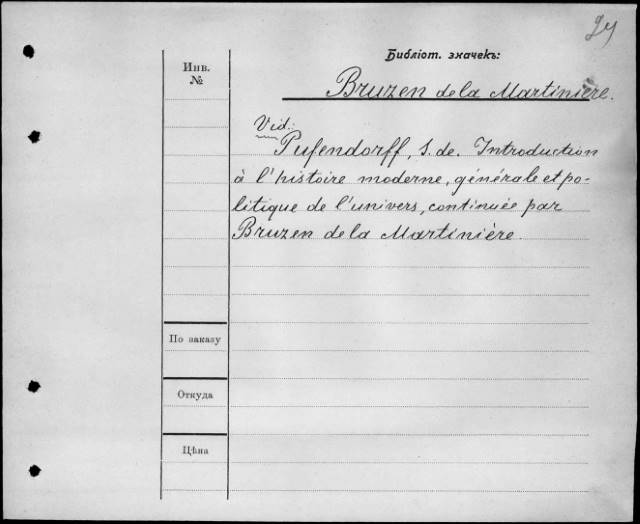 Библіот. значекъ:
Инв.
№
Bruzen de la Martinière.
Vid:
Pufendorff, S. de. Introduction
à l'histoire moderne, générale et po-
litique de l'univers, continuée par
Bruzen de la Martinière.
По заказу
Откуда
Цѣна